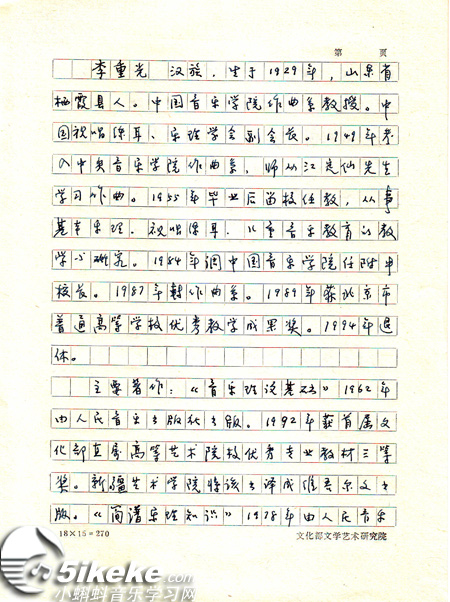 第 页
李重光 汉族,生于1929年,山东省
栖霞县人。中国音乐学院作曲系教授。中
国视唱练耳、乐理学会副会长。1949年考
入中央音乐学院作曲系,师从江定仙先生
学习作曲。1955年毕业后留校任教,从事
基本乐理、视唱练耳、儿童音乐教育的教
学与研究。1984年调中国音乐学院任附中
校长。1987年转作曲系。1989年获北京市
普通高等学校优秀教学成果奖。1994年退
休。
主要著作:《音乐理论基础》1962年
由人民音乐出版社出版。1992年获首届文
化部直属高等艺术院校优秀专业教材二等
奖。新疆艺术学院将该书译成维吾尔文出
版。《简谱乐理知识》1978年由人民音乐
18×15=270 文化部文学艺术研究院
5ikeke.com
小蝌蚪音乐学习网